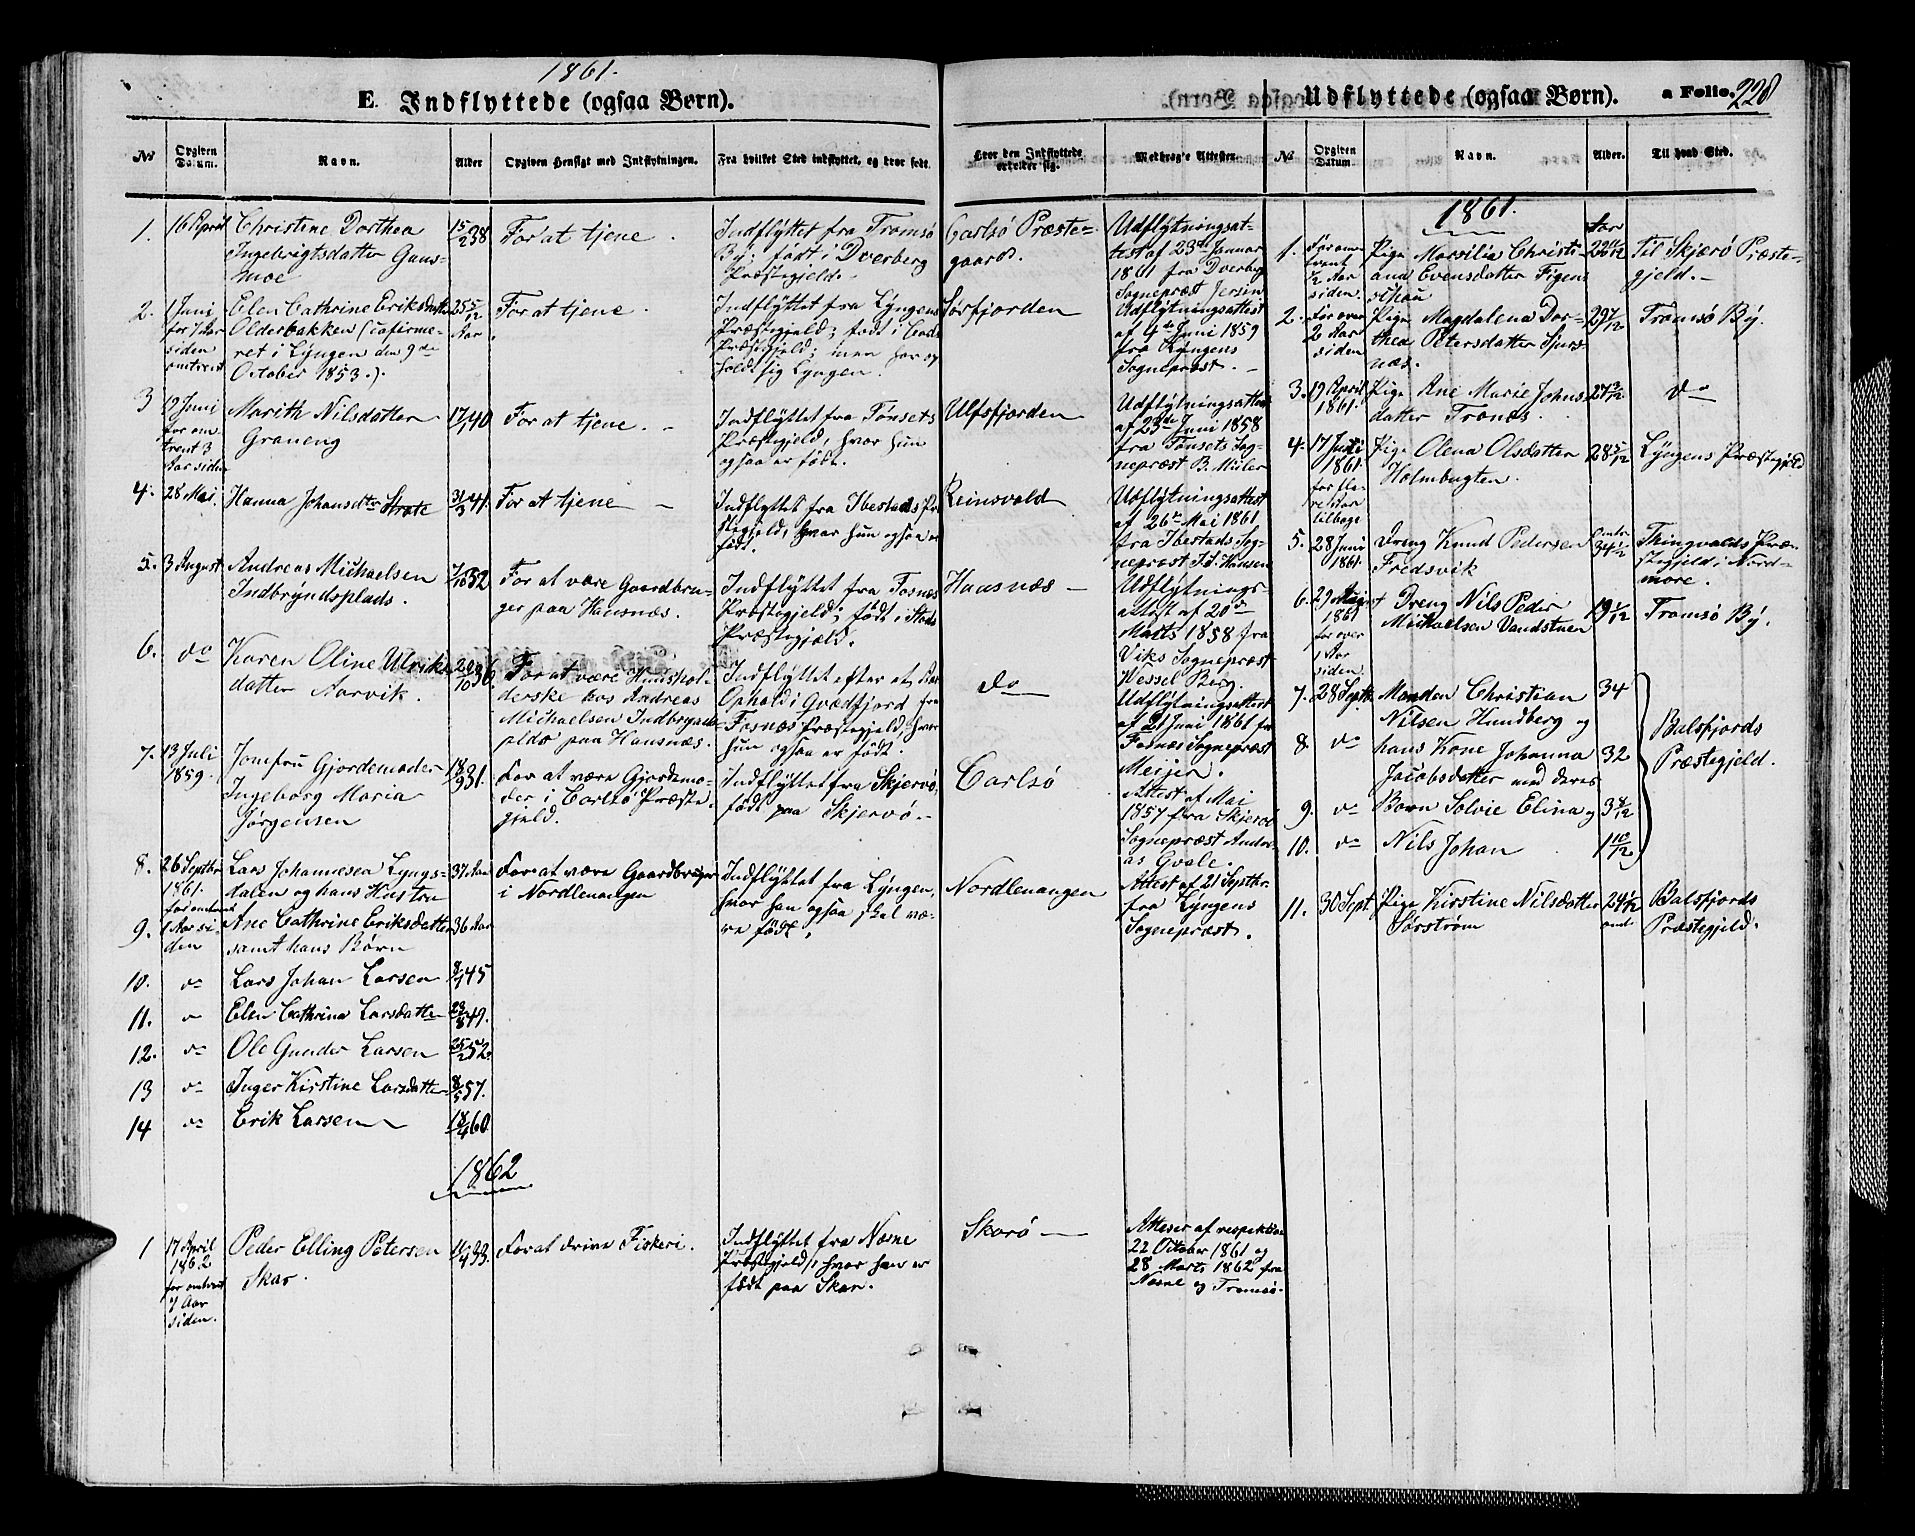 1861.
E. Indflyttede (ogsaa Børn).
№
Opgiven Datum.
Navn.
Alder
Opgiven Hensigt med Indflytningen.
Fra hvilket Sted indflyttet, og hvor født.
Hvor den Indflyttede opholder sig.
Medbragte Attester.
1.
16 April
Christine Dorthea
Ingebrigtsdatter Gaus-
moe
15/2 38
For at tjene.
Indflyttet fra Tromsø
By; født i Dverberg
Præstegjeld.
Carlsø Præste-
gaard.
Udflytningsat-
test af 23de Januar
1861 fra Dverberg
Sognepræst Jersin
2.
1 Juni
for 7 Aar
siden
omtrent
Elen Cathrine Eriksdatter
Olderbakken (cofirme-
ret i Lyngen den 9de
October 1853.).
25 5/12
Aar
For at tjene.
Indflyttet fra Lyngens
Præstegjeld; født i
Præstegjeld; men har op-
holdt sig Lyngen.
Sørfjorden
Udflytningsattest
af 4de Juni 1859
fra Lyngens
Sognepræst.
3
19 Juni
for om-
trent 3
Aar siden
Marith Nilsdatter
Graneng
17/1 40
For at tjene.
Indflyttet fra Tønsets
Præstegjeld, hvor hun
ogsaa er født.
Ulfsfjorden
Udflytningsattest
af 23de Juni 1858
fra Tønsets Sog-
nepræst B. Müler
4.
28 Mai.
Hanna Johansdtr Strate
31/3 41.
For at tjene
Indflyttet fra Ibestads Præ-
stegjeld, hvor hun ogsaa er
født.
Reinsvold
Udflytningsattest
af 26de Mai 1861
fra Ibestads Sog-
nepræst Hansen
5.
3 August
Andreas Michaelsen
Indbryndsplads.
7/10 32
For at være Gaardbru-
ger paa Hansnæs.
Indflyttet fra Fosnæs
Præstegjeld; født i Stods
Præstegjeld.
Hansnæs
Udflytnings-
attest af 20de
Marts 1858 fra
Viks Sognepræst
Wessel Berg.
6.
do
Karen Oline Ulriks-
datter Aarvik.
20/10 36.
For at være Huushol-
derske hos Andreas
Michaelsen Indbrynds-
plds paa Hansnæs.
Indflyttet efter et Aars
Ophold i Qvædfjord fra
Fosnæs Præstegjeld, hvor
hun ogsaa er født.
do
Udflytningsattest
af 2 Juni 1861 fra
Fosnæs Sognepræst
Meijer.
7.
13 Juli
1859.
Jomfru Gjordemoder
Ingeborg Maria
Jørgensen
18/9 31.
For at være Gjordemo-
der i Carlsø Præste-
gjeld.
Indflyttet fra Skjervø,
født paa Skjervø.
Carlsø
Attest af Mai
1857 fra Skjervø
Sognepræst Andre-
as Qvale.
8.
26 Septbr
1861.
for omtrent
1 Aar si-
den
Lars Johannesen Lyngs-
dalen og hans Hustru
37 Aar
For at være Gaardbruger
i Nordlenangen
Indflyttet fra Lyngen,
hvor han ogsaa skal væ-
re født.
Nordlenangen
Attest af 21 Septbr.
fra Lyngens
Sognepræst.
9.
Ane Cathrine Eriksdatter
samt hans Børn
36 Aar
10.
do
Lars Johan Larsen
8/1 45
11.
do
Elen Cathrina Larsdatter
23/8 49.
12.
do
Ole Gunder Larsen
25/2 52.
13
do
Inger Kirstine Larsdatter
8/5 57.
14
do
Erik Larsen
18/4 60
1862
1
17 April
1862
for omtrent
7 Aar
siden.
Peder Elling Petersen
Skar.
11/4 33.
For at drive Fiskeri.
Indflyttet fra Næsne
Præstegjeld, hvor han er
født paa Skar.
Skarø
Attester af respektive
22 October 1861 og
28 Marts 1862 fra
Næsne og Tromsø.
Udflyttede (ogsaa Børn).
a Folio.
228
№
Opgiven Datum.
Navn.
Alder.
Til hvad Sted.
1861.
Aar
1.
For om-
trent
1/2 Aar
siden.
Pige Marsilia Christi-
ana Evensdatter Figen-
schau
22 11/12
Til Skjerø Præste-
gjeld.
2.
For over
2 Aar
siden
Pige Magdalena Dor-
thea Petersdatter Spors-
næs.
29 7/12
Tromsø By.
3.
19 April
1861.
Pige Ane Marie Johns-
datter Tronæs.
27 3/12
do
4.
17 Juli
1861.
for fle-
re Aar
tilbage
Pige Olena Olsdatter
Holmbugten.
28 5/12
Lyngens Præstegjeld
5.
28 Juni
1861.
Dreng Knud Pedersen
Fredsvik
34 1/2
Thingvolds Præ-
stegjeld i Nord-
møre.
6.
29 August
1861
for over
1 Aar
siden.
Dreng Nils Peder
Michaelsen Vandstuen
19 1/12
Tromsø By.
7.
28 Septbr
Manden Christian
Nilsen Hundberg og
34
8.
do
hans Kone Johanna
Jacobsdatter med deres
32
Balsfjords
Præstegjeld.
9.
do
Børn Solvie Elina og
3 8/12
10.
do
Nils Johan
1 10/12
11.
30 Sept.
Pige Kirstine Nilsdatter
Sørstrøm
24 1/2
Balsfjords
Præstegjeld.